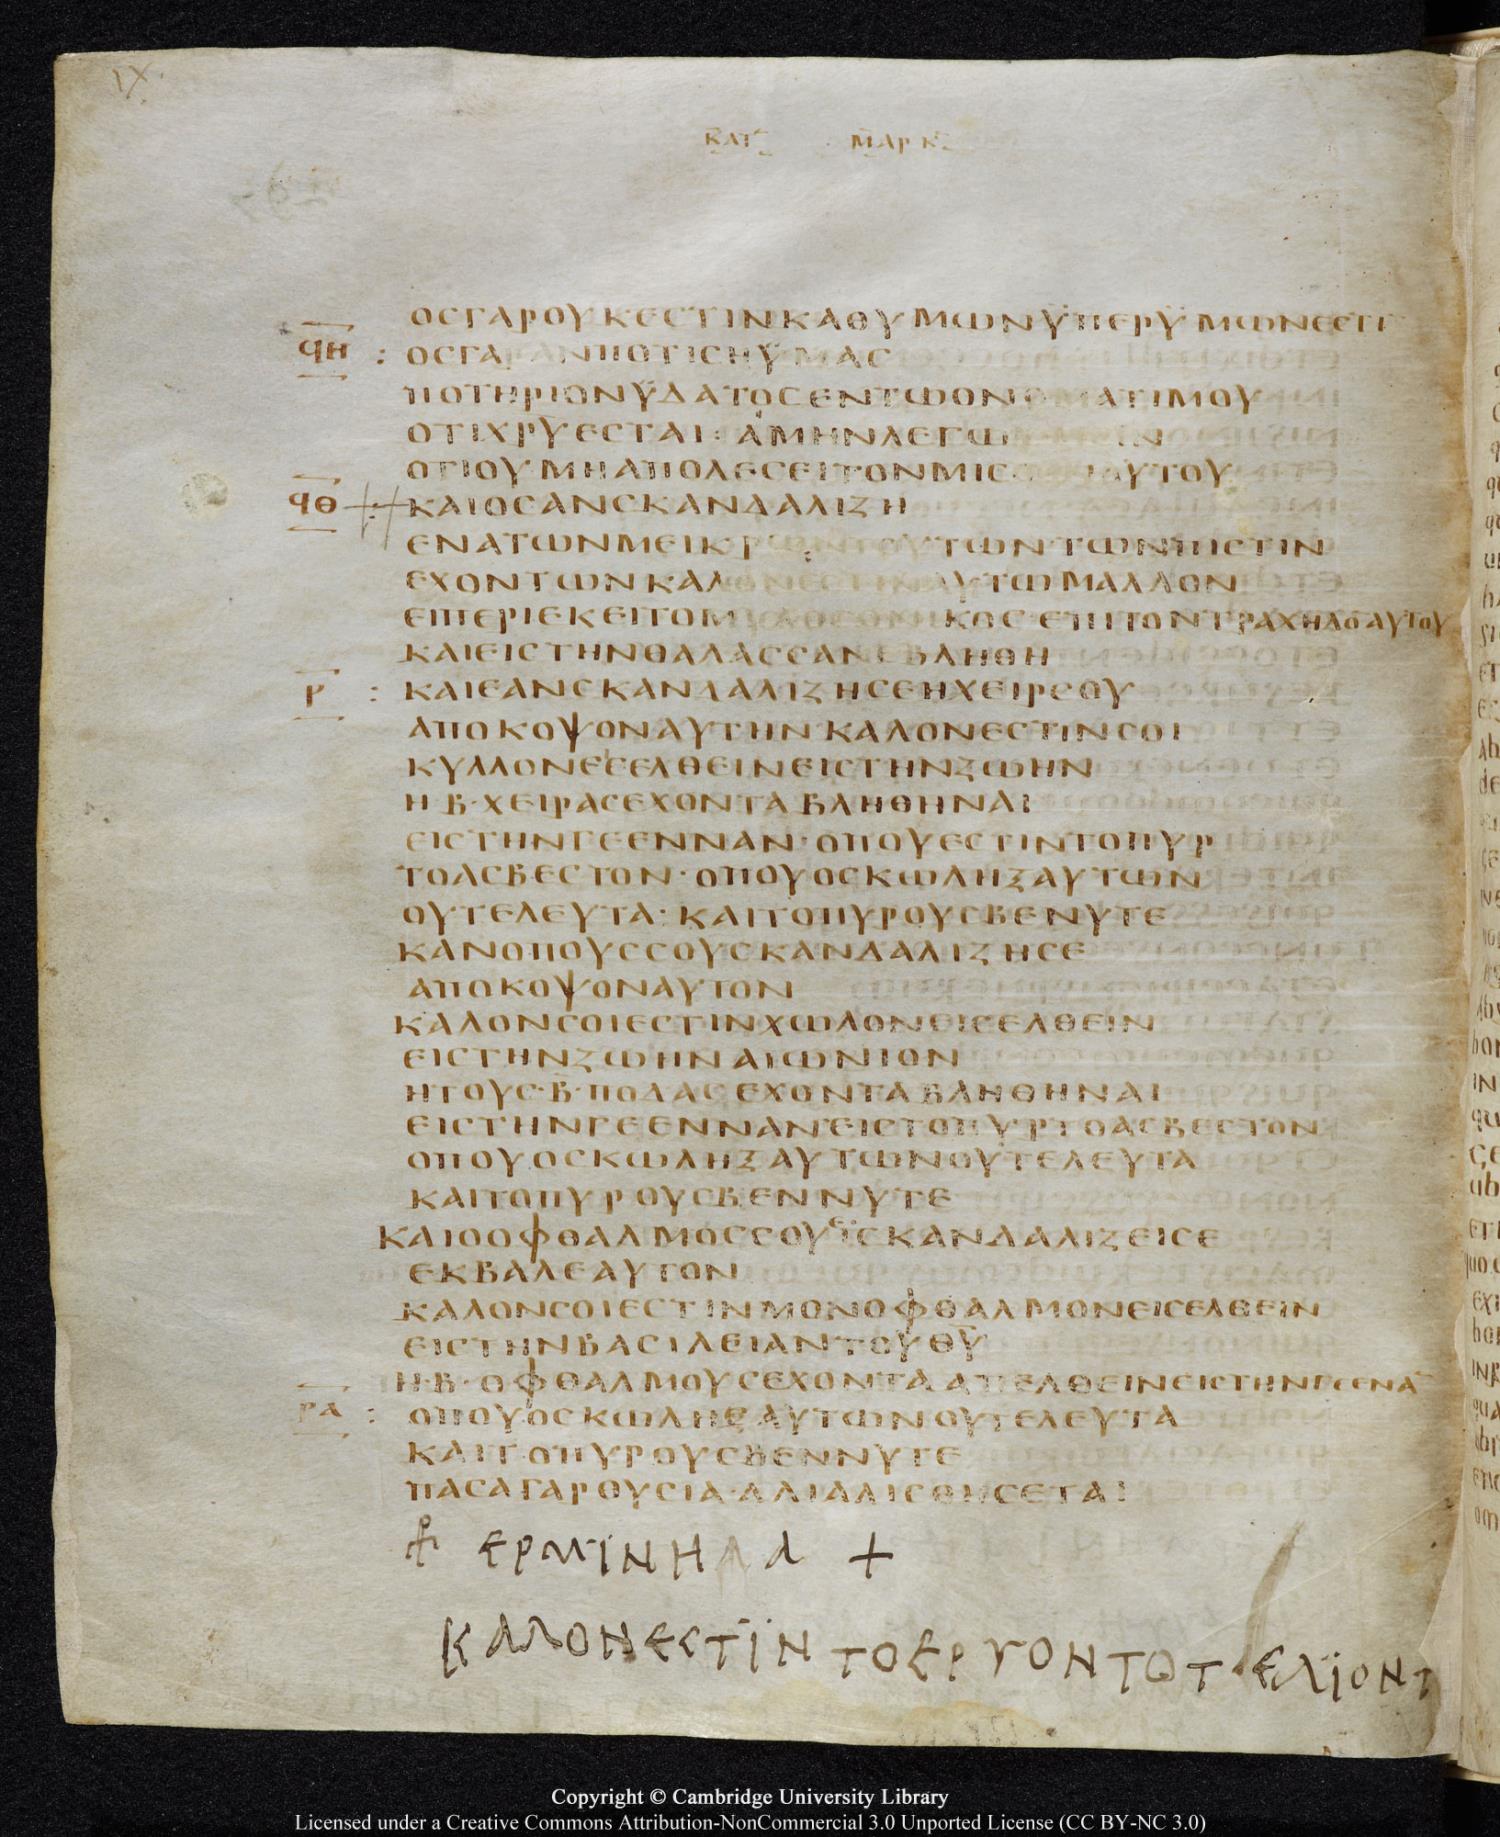 IX
ΚΑΤ ΜΑΡΚ
ΟСΓΑΡΟΥΚΕСΤΙΝΚΑΘΥΜΩΝΫΠΕΡΫΜΩΝΕСΤΙ
ϤΗ : ΟСΓΑΡΑΝΠΟΤΙСΗΫΜΑС
ΠΟΤΗΡΙΟΝΫΔΑΤΟСΕΝΤΩΟΝΟΜΑΤΙΜΟΥ
ΟΤΙΧΡΥΕСΤΑΙ : ΑΜΗΝΛΕΓΩ
ΟΤΙΟΥΜΗΑΠΟΛΕСΕΙΤΟΝΜΙС ΑΥΤΟΥ
ϤΘ ΚΑΙΟСΑΝСΚΑΝΔΑΛΙΖΗ
ΕΝΑΤΩΝΜΕΙΚΡΩΝΤΟΥΤΩΝΤΩΝΠΙСΤΙΝ
ΕΧΟΝΤΩΝΚΑΛΟΝΕСΤΙΝΑΥΤΩΜΑΛΛΟΝ
ΕΙΠΕΡΙΕΚΕΙΤΟΜΥΛΟСΟΝΙΚΟСΕΠΙΤΟΝΤΡΑΧΗΛΟΑΥΤΟΥ
ΚΑΙΕΙСΤΗΝΘΑΛΑССΑΝΕΒΛΗΘΗ
Ρ : ΚΑΙΕΑΝСΚΑΝΔΑΛΙΖΗСΕΗΧΕΙΡСΟΥ
ΑΠΟΚΟΨΟΝΑΥΤΗΝΚΑΛΟΝΕСΤΙΝСΟΙ
ΚΥΛΛΟΝΕΙСΕΛΘΕΙΝΕΙСΤΗΝΖΩΗΝ
Η·Β·ΧΕΙΡΑСΕΧΟΝΤΑΒΛΗΘΗΝΑΙ
ΕΙСΤΗΝΓΕΕΝΝΑΝ·ΟΠΟΥΕСΤΙΝΤΟΠΥΡ
ΤΟΑСΒΕСΤΟΝ·ΟΠΟΥΟСΚΩΛΗΞΑΥΤΩΝ
ΟΥΤΕΛΕΥΤΑ: ΚΑΙΤΟΠΥΡΟΥСΒΕΝΥΤΕ
ΚΑΝΟΠΟΥССΟΥСΚΑΝΔΑΛΙΖΗСΕ
ΑΠΟΚΟΨΟΝΑΥΤΟΝ
ΚΑΛΟΝСΟΙΕСΤΙΝΧΩΛΟΝΕΙСΕΛΘΕΙΝ
ΕΙСΤΗΝΖΩΗΝΑΙΩΝΙΟΝ
ΗΤΟΥС·Β·ΠΟΔΑСΕΧΟΝΤΑΒΛΗΘΗΝΑΙ
ΕΙСΤΗΝΓΕΕΝΝΑΝΕΙСΤΟΠΥΡΤΟΑСΒΕСΤΟΝ
ΟΠΟΥΟСΚΩΛΗΞΑΥΤΩΝΟΥΤΕΛΕΥΤΑ
ΚΑΙΤΟΠΥΡΟΥСΒΕΝΝΥΤΕ
ΚΑΙΟΟΦΘΑΛΜΟССΟΥΕΙСΚΑΝΔΑΛΙΖΕΙСΕ
ΕΚΒΑΛΕΑΥΤΟΝ
ΚΑΛΟΝСΟΙΕСΤΙΝΜΟΝΟΦΘΑΛΜΟΝΕΙСΕΛΘΕΙΝ
ΕΙСΤΗΝΒΑСΙΛΕΙΑΝΤΟΥΘΥ
Η·Β·ΟΦΘΑΛΜΟΥСΕΧΟΝΤΑΑΠΕΛΘΕΙΝΕΙСΤΗΝΓΕΕΝΑ
ΡΑ : ΟΠΟΥΟСΚΩΛΗΞΑΥΤΩΝΟΥΤΕΛΕΥΤΑ
ΚΑΙΤΟΠΥΡΟΥСΒΕΝΝΥΤΕ
ΠΑСΑΓΑΡΘΥСΙΑ·ΑΛΙΑΛΙСΘΗСΕΤΑΙ
ΕΡΜΙΝΗΑΑ +
ΚΑΛΟΝΕСΤΪΝ ΤΟΕΡΓΟΝΤΟΤΕΛΪΟΝΤ
Copyright © Cambridge University Library
Licensed under a Creative Commons Attribution-NonCommercial 3.0 Unported License (CC BY-NC 3.0)